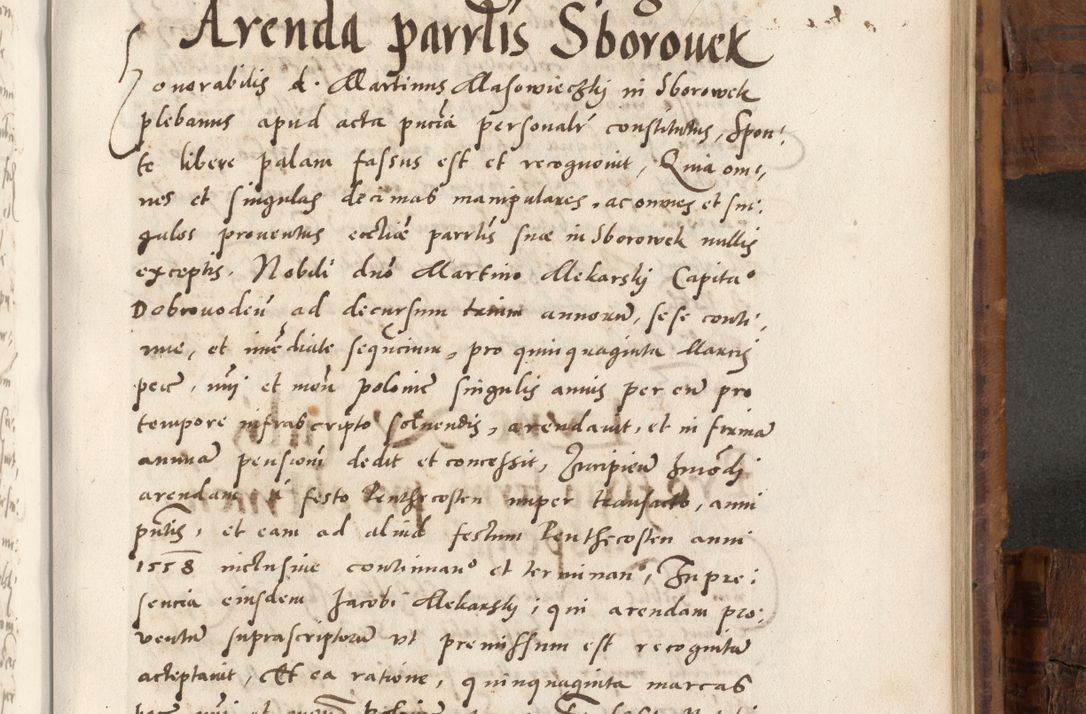 Arenda parrlis Sborowek
Honorabilis d. Martinus Masowieczkj in Sborowek
plebanus apud acta pncia personalr constitutus, Spon-
te libere palam fassus est et recognovit, Quia om-
nes et singulas decimas manipulares, ac omnes et sin-
gulos proventus ecclie parrlis sue in Sborowek nullis
exceptis, Nobili dno Martino Mekarskj Capita°
Dobrovoden ad decursum trium annorum, sese conti-
nue, et immediate sequencium, pro quinquaginta Marcis
pecie, nri et mon polonie singulis annis per eum pro
tempore infrascripto solvendis, arendavit, et in firmam
annuam pensionem dedit et concessit, Incipiendo hmodi
arendam a festo Penthecosten nuper transacto, anni
pntis, et eam ad aliud festum Penthecosten anni
1558 inclusive continuando et terminando, In pre-
sencia eiusdem Jacobi Mekarskj, qui arendam pro-
ventuum suprascriptorum ut premissum est recognitam
acceptavit, Et ea ratione, quinquaginta marcas